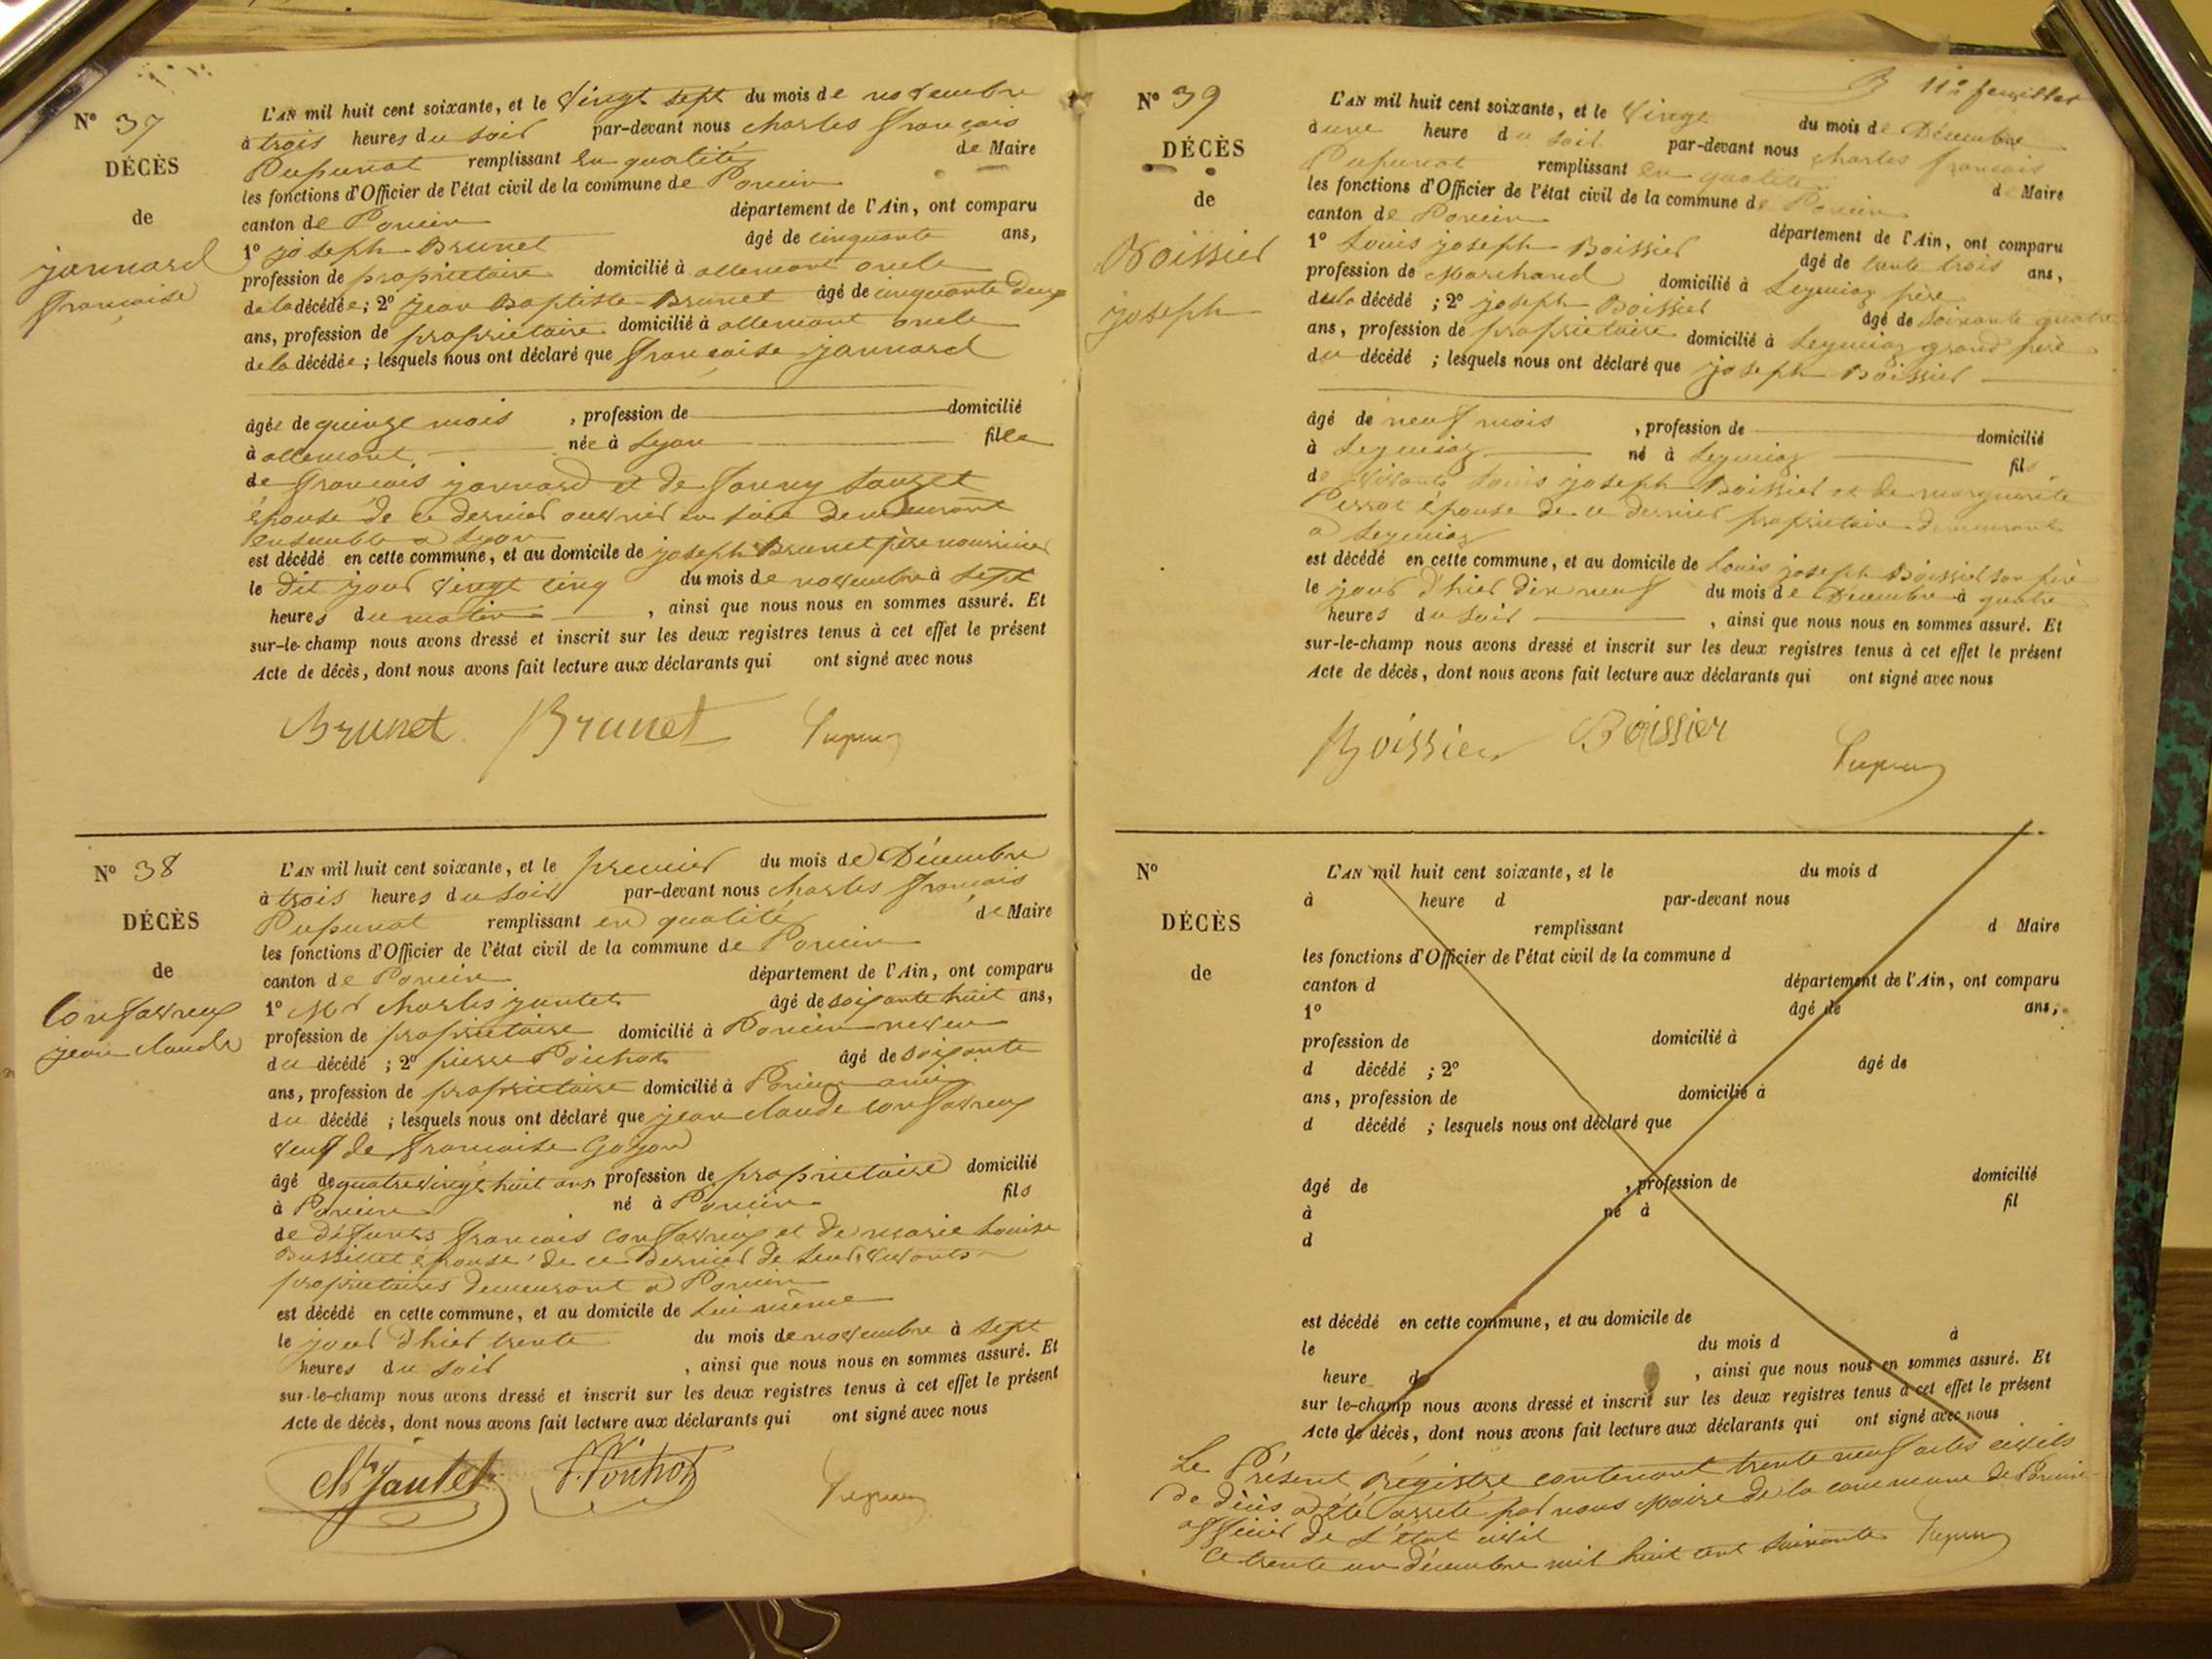 N° 37
DÉCÈS
de
jannard
françoise
L'AN mil huit cent soixante, et le vingt sept du mois de novembre
à trois heures du soir par-devant nous charles françois
Pupunat remplissant en qualité de Maire
les fonctions d'Officier de l'état civil de la commune de Poncin
canton de Poncin département de l'Ain, ont comparu
1° joseph Brunet âgé de cinquante ans,
profession de propriétaire domicilié à allement oncle
de la décédée; 2° jean Baptiste Brunet âgé de cinquante deux
ans, profession de propriétaire domicilié à allement oncle
de la décédée; lesquels nous ont déclaré que françoise jannard
âgée de quinze mois, profession de domicilié
à allement née à Lyon fille
de françois jannard et de fanny
épouse de ce dernier ouvrier en soie demeurant
ensemble a Lyon
est décédé en cette commune, et au domicile de joseph Brunet père nourricier
le dit jour vingt cinq du mois de novembre à sept
heures du matin, ainsi que nous nous en sommes assuré. Et
sur-le-champ nous avons dressé et inscrit sur les deux registres tenus à cet effet le présent
Acte de décès, dont nous avons fait lecture aux déclarants qui ont signé avec nous
Brunet Brunet
N° 38
DÉCÈS
de
Confavreux
jean claude
L'AN mil huit cent soixante, et le premier du mois de Décembre
à trois heures du soir par-devant nous charles françois
Pupunat remplissant en qualité de Maire
les fonctions d'Officier de l'état civil de la commune de Poncin
canton de Poncin département de l'Ain, ont comparu
1° Mr charles jantet âgé de soixante huit ans,
profession de propriétaire domicilié à Poncin neveu
du décédé; 2° pierre Poichot âgé de soixante
ans, profession de propriétaire domicilié à Poncin ami
du décédé; lesquels nous ont déclaré que jean claude confavreux
veuf de françoise Goyon
âgé de quatre vingt huit ans profession de propriétaire domicilié
à Poncin né à Poncin fils
de défunts françois confavreux et de marie Louise
Bussillet épouse de ce dernier de leur vivants
propriétaires demeurant a Poncin
est décédé en cette commune, et au domicile de lui même
le jour d'hier trente du mois de novembre à sept
heures du soir, ainsi que nous nous en sommes assuré. Et
sur-le-champ nous avons dressé et inscrit sur les deux registres tenus à cet effet le présent
Acte de décès, dont nous avons fait lecture aux déclarants qui ont signé avec nous
Ch Jantet
11e feuillet
N° 39
DÉCÈS
de
Boissier
joseph
L'AN mil huit cent soixante, et le vingt du mois de Décembre
à une heure du soir par-devant nous charles françois
Pupunat remplissant en qualité de Maire
les fonctions d'Officier de l'état civil de la commune de Poncin
canton de Poncin département de l'Ain, ont comparu
1° Louis joseph Boissier âgé de trente trois ans,
profession de Marchand domicilié à Leymiaz père
du décédé; 2° joseph Boissier âgé de soixante quatre
ans, profession de propriétaire domicilié à Leymiaz grand père
du décédé; lesquels nous ont déclaré que joseph Boissier
âgé de neuf mois, profession de domicilié
à Leymiaz né à Leymiaz fils
de vivants Louis joseph Boissier et de marguerite
Perrot épouse de ce dernier propriétaire demeurant
a Leymiaz
est décédé en cette commune, et au domicile de Louis joseph Boissier son père
le jour d'hier dix neuf du mois de Décembre à quatre
heures du soir, ainsi que nous nous en sommes assuré. Et
sur-le-champ nous avons dressé et inscrit sur les deux registres tenus à cet effet le présent
Acte de décès, dont nous avons fait lecture aux déclarants qui ont signé avec nous
Boissier Boissier
N°
DÉCÈS
de
L'AN mil huit cent soixante, et le du mois d
à heure d par-devant nous
remplissant d Maire
les fonctions d'Officier de l'état civil de la commune d
canton d département de l'Ain, ont comparu
1° âgé de ans,
profession de domicilié à
d décédé ; 2° âgé de
ans, profession de domicilié à
d décédé ; lesquels nous ont déclaré que
âgé de , profession de domicilié
à né à fil
d
est décédé en cette commune, et au domicile de
le du mois d à
heure d , ainsi que nous nous en sommes assuré. Et
sur le-champ nous avons dressé et inscrit sur les deux registres tenus à cet effet le présent
Acte de décès, dont nous avons fait lecture aux déclarants qui ont signé avec nous
Le Présent Registre contenant trente neuf actes civils
de décès a été arreté par nous Maire de la commune de Poncin
officier de L'état civil
Ce trente un décembre mil huit cent soixante